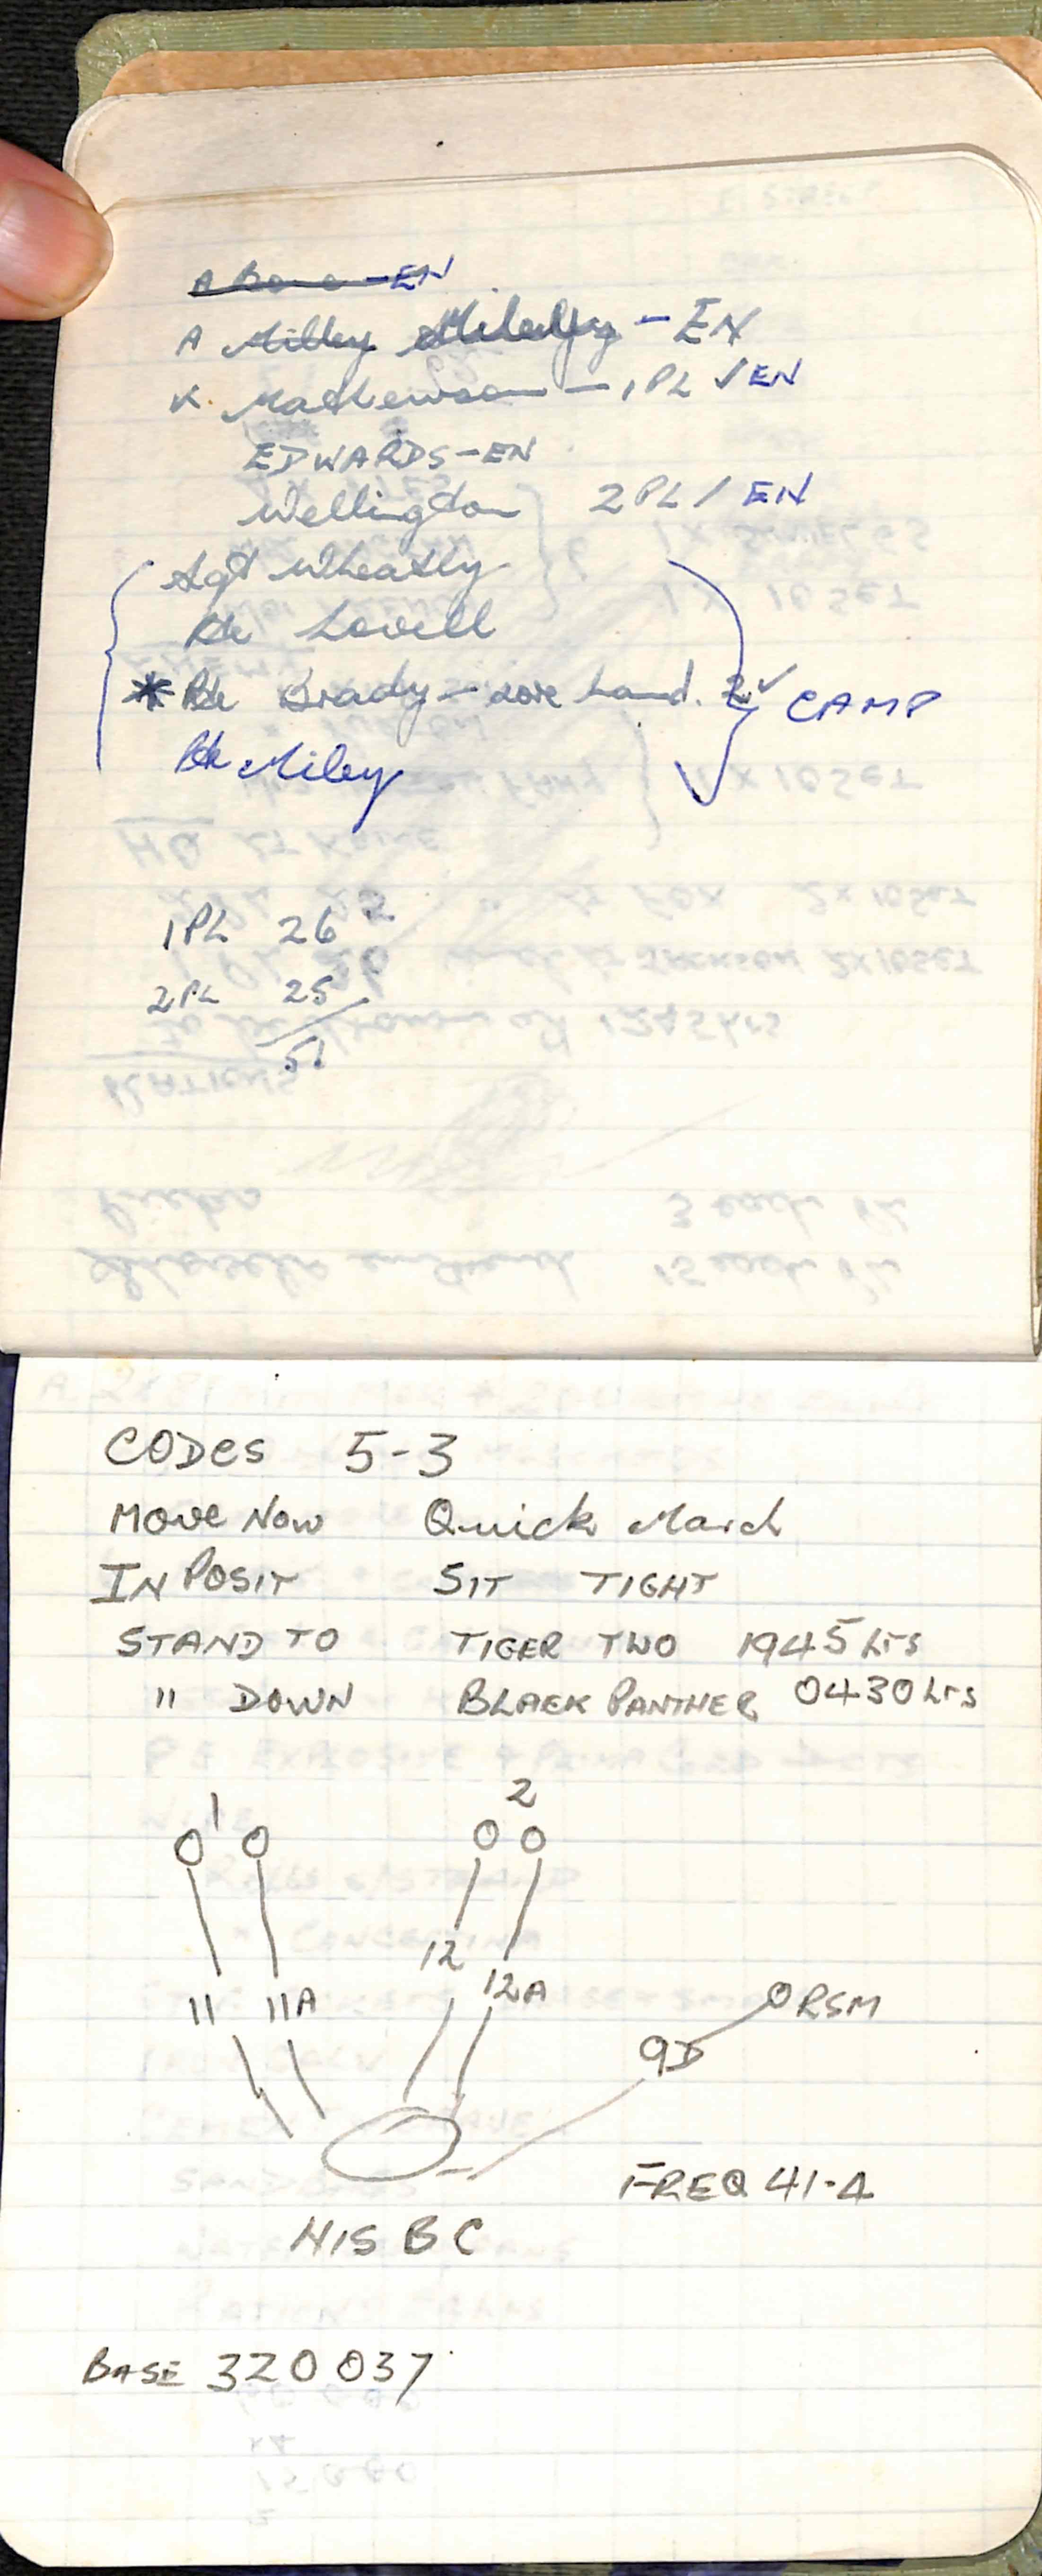 A - EN
A Milley - EN
K. Mathewson - 1PL / EN
EDWARDS - EN
Wellington 2PL / EN
Sgt Wheatly
Pte Lovell
* Pte Brady - sore hand. CAMP
Pte Miley
1PL 26
2PL 25
51
CODES 5-3
MOVE NOW Quick March
IN POSIT SIT TIGHT
STAND TO TIGER TWO 1945 hrs
" DOWN BLACK PANTHER 0430 hrs
1 2
O O O O
12
11 11A 12A
O RSM
9D
FREQ 41.4
BASE 320037